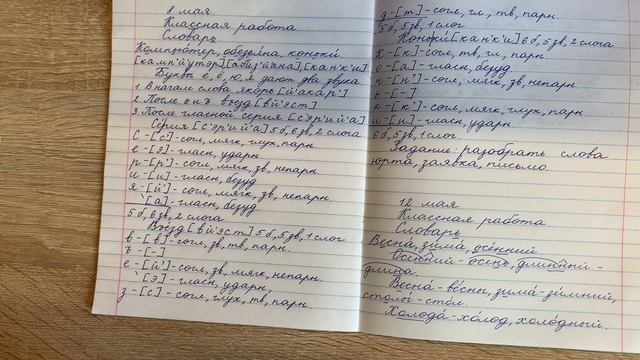 8 мая.
Классная работа.
Словарь
Компьютер, обезьяна, коньки
[кампй'утэр], [абиз'й'ана], [кан'к'и]
Буквы е, ё, ю, я дают два звука
1. В начале слова якорь [й'акар']
2. После ь и ъ въезд [вй'эст]
3. После гласной серия [с'эр'ий'а]
Серия [с'эр'ий'а] 5б, 6зв, 2 слога
С-[с]-согл, мягк, глух, парн.
е-[э]-гласн, ударн.
р-[р]-согл, мягк, зв, непарн.
и-[и]-гласн, безуд
я-[й']-согл, мягк, зв, непарн.
[а]-гласн, безуд
5б, 6зв, 2 слога
Въезд [вй'эст] 5б, 5зв, 1 слог
в-[в]-согл, зв, тв, парн.
ъ-[-]
е-[й']-согл, зв, мягк, непарн.
[э]-гласн, ударн,
з-[с]-согл, глух, тв, парн.
д-[т]-согл, гл, тв, парн.
5б, 5зв, 1 слог
Коньки [кан'к'и] 6б, 5зв, 2 слога
К-[к]-согл, тв, гл, парн.
о-[а]-гласн, безуд.
н-[н']-согл, мягк, зв, непарн
ь-[-]
к-[к']-согл, мягк, глух, парн.
и-[и]-гласн, ударн
6б, 5зв, 1 слог.
Задание: разобрать слова
юрта, заявка, письмо.
12 мая
Классная работа
Словарь
Весна, зима, осенний
Осенний-осень, длинный-
длина.
Весна-вёсны, зима-зимний,
столы-стол.
Холода-холод, холодный.